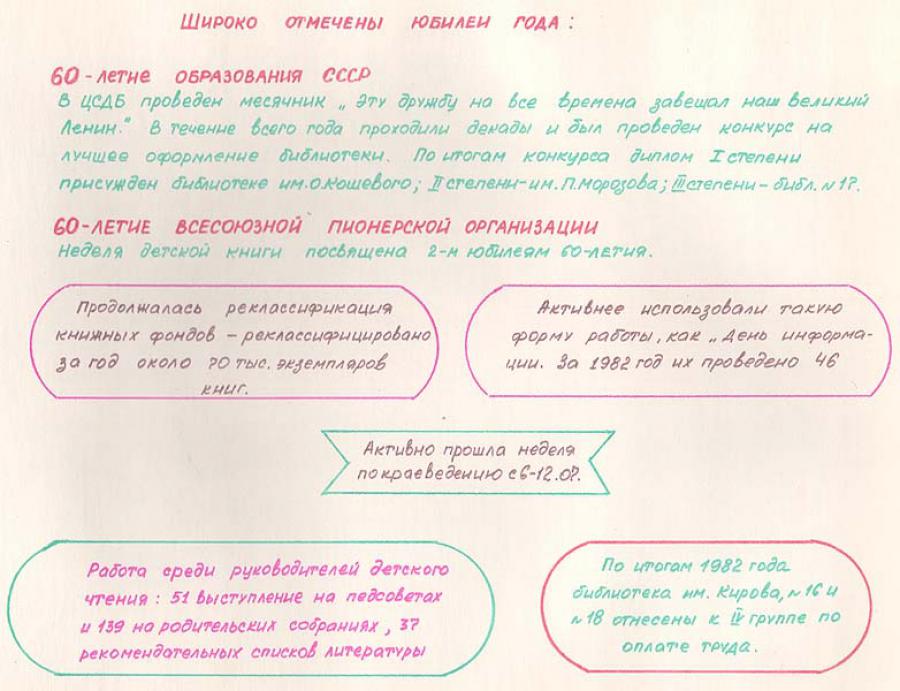 Широко отмечены юбилеи года:
60-летие образования СССР
В ЦСДБ проведен месячник „Эту дружбу на все времена завещал наш великий
Ленин." В течение всего года проходили декады и был проведен конкурс на
лучшее оформление библиотеки. По итогам конкурса диплом I степени
присужден библиотеке им. О.Кошевого; II степени-им. П.Морозова; III степени-библ. №17.
60-летие Всесоюзной пионерской организации
Неделя детской книги посвящена 2-м юбилеям 60-летия.
Продолжалась реклассификация
книжных фондов - реклассифицировано
за год около 70 тыс. экземпляров
книг.
Активнее использовали такую
форму работы, как „День информа-
ции. За 1982 год их проведено 46
Активно прошла неделя
по краеведению с 6-12.07.
Работа среди руководителей детского
чтения: 51 выступление на педсоветах
и 139 на родительских собраниях, 37
рекомендательных списков литературы
По итогам 1982 года
библиотека им. Кирова, №16 и
№18 отнесены к IV группе по
оплате труда.